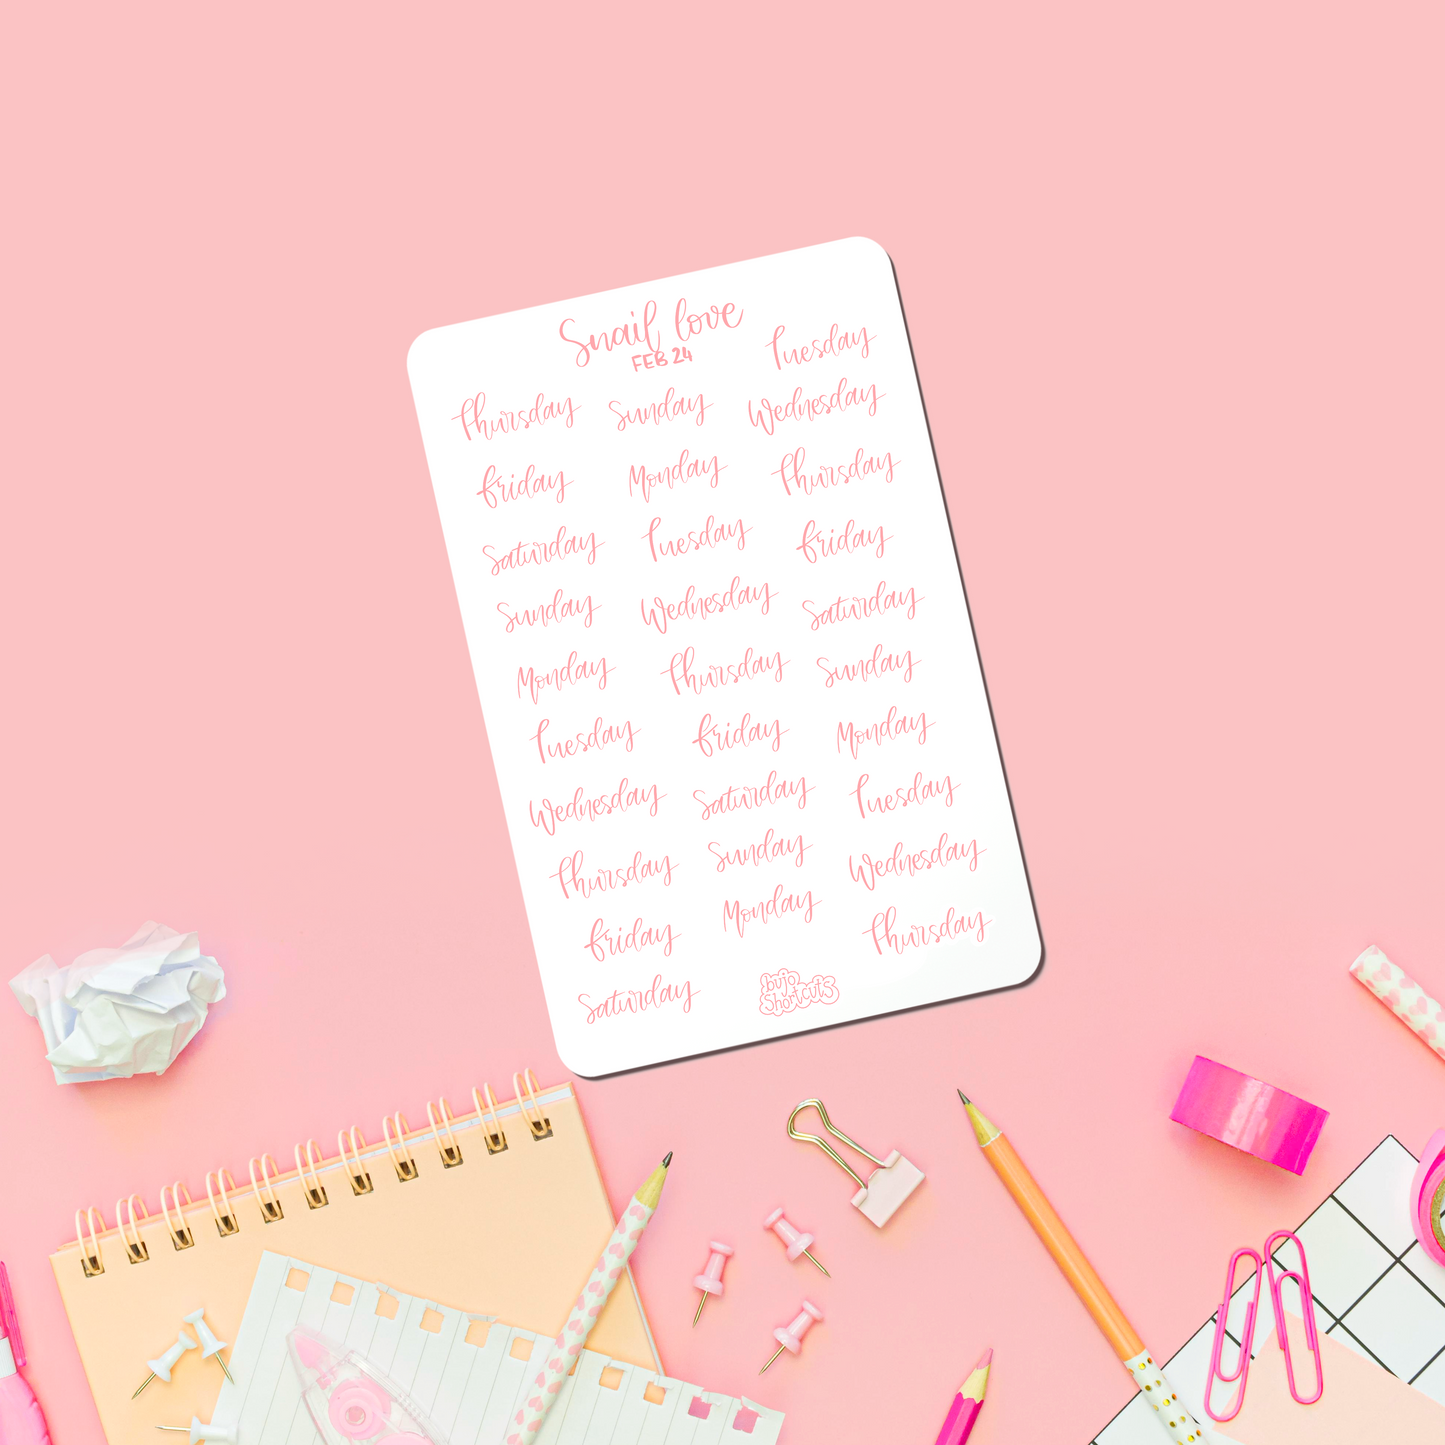 Snail love
FEB 24
Thursday
Friday
Saturday
Sunday
Monday
Tuesday
Wednesday
Thursday
Friday
Saturday
Sunday
Monday
Tuesday
Wednesday
Thursday
Friday
Saturday
Sunday
Monday
Tuesday
Wednesday
Thursday
Friday
Saturday
Sunday
Monday
Tuesday
Wednesday
Thursday
bujo
Shortcuts